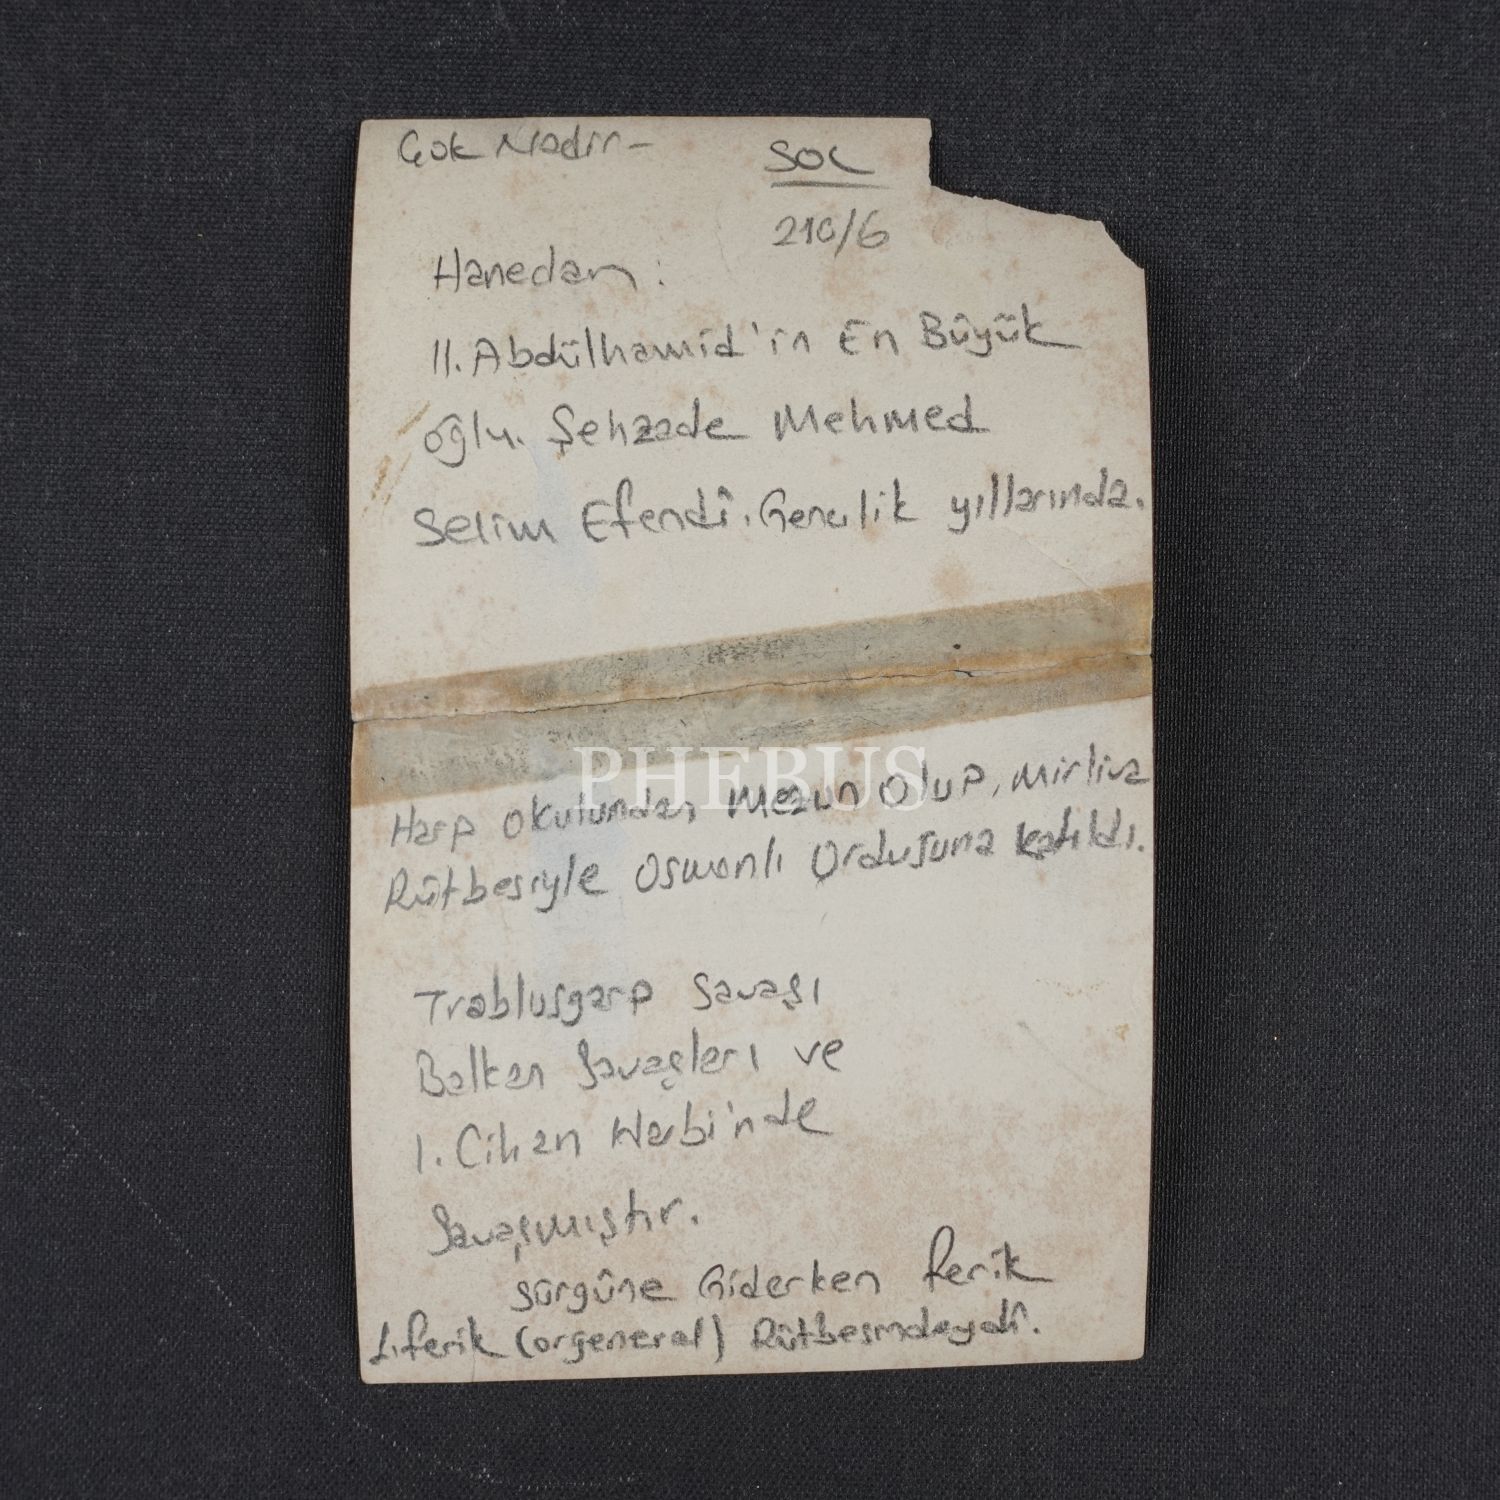 Çok Nadir-
SOL
210/6
Hanedan:
II. Abdülhamid'in En Büyük
oğlu. Şehzade Mehmed
Selim Efendi. Gençlik yıllarında.
PHEBUS
Harp okulundan Mezun Olup, Mirliva
Rütbesiyle Osmanlı Ordusuna katıldı.
Trablusgarp Savaşı
Balkan Savaşları ve
1. Cihan Harbi'nde
Savaşmıştır.
Sürgüne Giderken ferik
1. ferik (orgeneral) Rütbesindeydi.